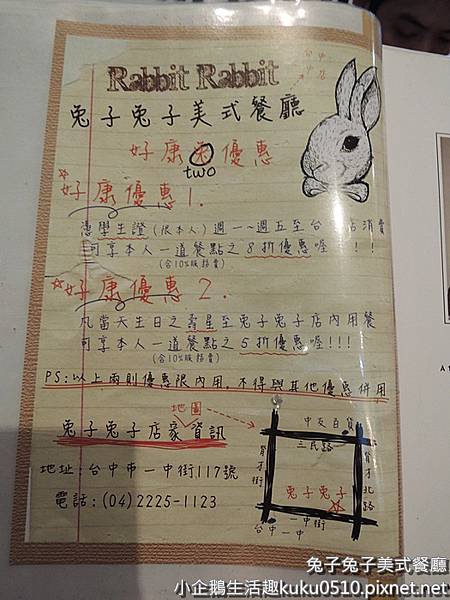 Rabbit Rabbit
兔子兔子美式餐廳
好康 優惠
two
好康優惠1.
憑學生證(限本人)週一~週五至台 店消費
可享本人一道餐點之8折優惠喔!!!
(含10%服務費)
好康優惠2.
凡當天生日之壽星至兔子兔子店內用餐
可享本人一道餐點之5折優惠喔!!!
(含10%服務費)
PS:以上兩則優惠限內用,不得與其他優惠併用
地圖
兔子兔子店家資訊
地址:台中市一中街117號
電話:(04)2225-1123
中友百貨
三民路
育才街
育才北路
兔子兔子
一中街
台中一中
兔子兔子美式餐廳
小企鵝生活趣kuku0510.pixnet.net